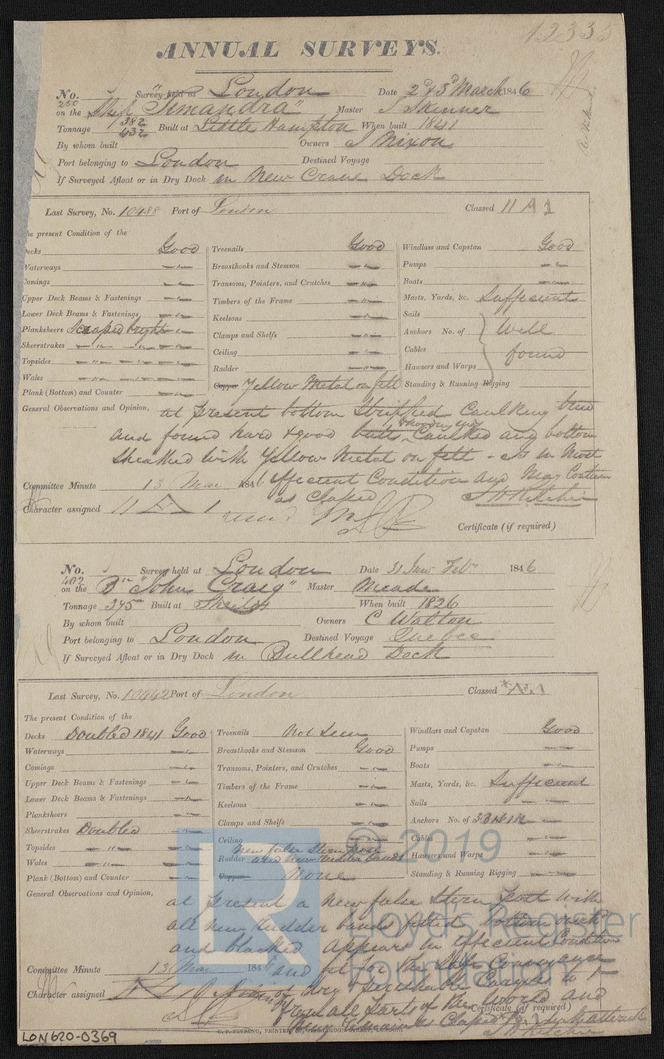 12335
ANNUAL SURVEYS.
No. 250 Survey held at London Date 2 & 3 March 1846
on the Ship "Timandra" Master J Skinner
Tonnage 382 432 Built at Little Hampton When built 1841
By whom built Owners J Nixon
Port belonging to London Destined Voyage
If Surveyed Afloat or in Dry Dock in New Crane Dock
Last Survey, No. 10488 Port of London Classed 11 A 1
The present Condition of the
Decks Good Treenails Good Windlass and Capstan Good
Waterways Breasthooks and Stemson Pumps
Comings Transoms, Pointers, and Crutches Boats
Upper Deck Beams & Fastenings Timbers of the Frame Masts, Yards, &c. Sufficient
Lower Deck Beams & Fastenings Keelsons Sails
Planksheers Scraped bright Clamps and Shelfs Anchors No. of Well
Sheerstrakes Ceiling Cables found
Topsides Rudder Hawsers and Warps
Wales Copper Yellow Metal on felt Standing & Running Rigging
Plank (Bottom) and Counter
General Observations and Opinion, at present bottom Stripped Caulking tried
and found hard & good butts Caulked and bottom
Sheathed with Yellow Metal on felt - is in most
Efficient Condition and May Continue
Committee Minute 13 Mar 1846
as Classed
Character assigned 11 A 1
Certificate (if required)
No. 402 Survey held at London Date 31 Jan Feb 1846
on the Bn "John Craig" Master Meade
Tonnage 345 Built at Shields When built 1826
By whom built Owners C Walton
Port belonging to London Destined Voyage Quebec
If Surveyed Afloat or in Dry Dock in Bullhead Dock
Last Survey, No. 10442 Port of London Classed *Æ1
The present Condition of the
Decks Doubled 1841 Good Treenails Not Seen Windlass and Capstan Good
Waterways Breasthooks and Stemson Good Pumps
Comings Transoms, Pointers, and Crutches Boats
Upper Deck Beams & Fastenings Timbers of the Frame Masts, Yards, &c. Sufficient
Lower Deck Beams & Fastenings Keelsons Sails
Planksheers Clamps and Shelfs Anchors No. of 3B1S1K
Sheerstrakes Doubled Ceiling Cables
Topsides new false Stern post Hawsers and Warps
Wales Rudder and new rudder bands Standing & Running Rigging
Plank (Bottom) and Counter Copper None
General Observations and Opinion, at present a new false Stern Post with
all new rudder bands fitted, bottom
and blacked appears in efficient Condition
and fit for the Safe Conveyance
Committee Minute 13 Mar 1846
of Dry & perishable Cargoes to &
Character assigned
from all Parts of the World and
Certificate (if required)
© 2019
Lloyd's Register
Foundation
LON620-0369